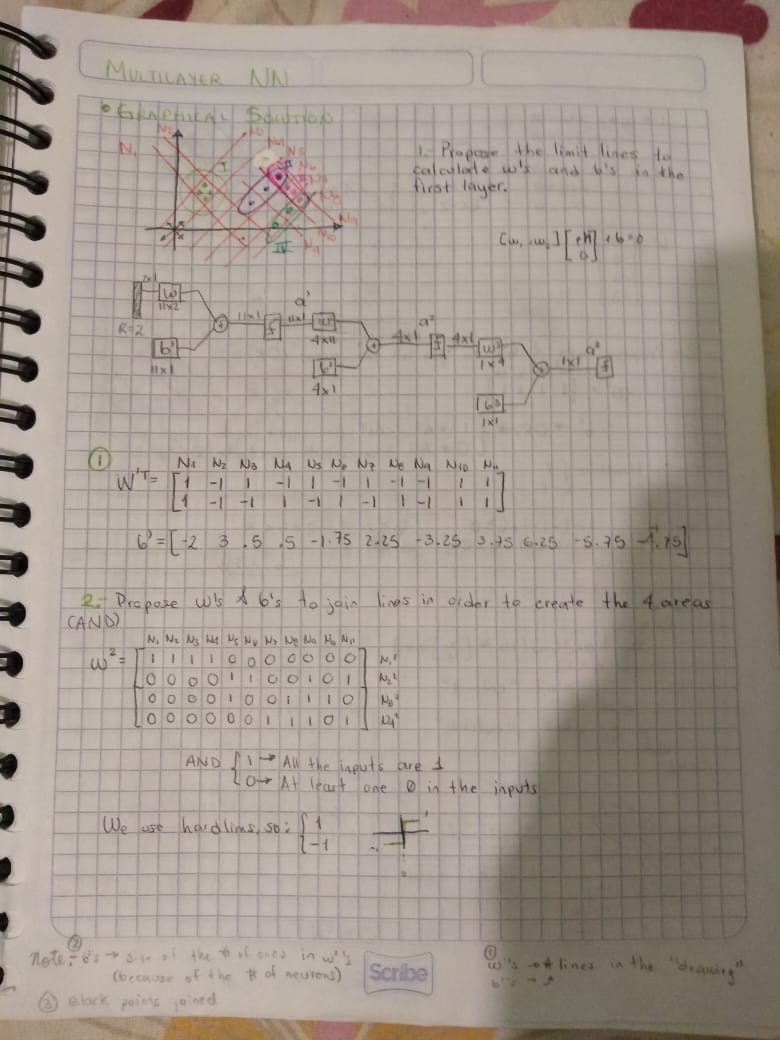 MULTILAYER NN
• GRAPHICAL SOLUTION
1.- Propose the limit lines to
calculate w's and b's in the
first layer.
I
IV
R=2
2x1
W
11x2
b'
11x1
11x1
f
a'
11x1
w²
4x11
4x1
4x1
a²
4x1
w³
1x4
b³
1x1
1x1
a³
f
①
N1 N2 N3 N4 N5 N6 N7 N8 N9 N10 N11
W'T = [ 1 -1 1 -1 1 -1 1 -1 -1 1 1
1 -1 -1 1 -1 1 -1 1 -1 1 1 ]
b' = [-2 3 .5 .5 -1.75 2.25 -3.25 3.75 6.25 -5.75
2.- Propose w's & b's to join lines in order to create the 4 areas
(AND)
N1 N2 N3 N4 N5 N6 N7 N8 N9 N10 N11
W² = [ 1 1 1 1 0 0 0 0 0 0 0 ] N1'
0 0 0 0 1 1 0 0 1 0 1 N2'
0 0 0 0 1 0 0 1 1 1 0 N3'
0 0 0 0 0 0 1 1 1 0 1 N4'
AND { 1 → All the inputs are 1
0 → At least one 0 in the inputs
We use hardlims, so: { 1
-1
② Note:- b's → size of the # of ones in w's
(because of the # of neurons)
② Black points joined
Scribe
① w's → # lines in the "drawing"
b's →